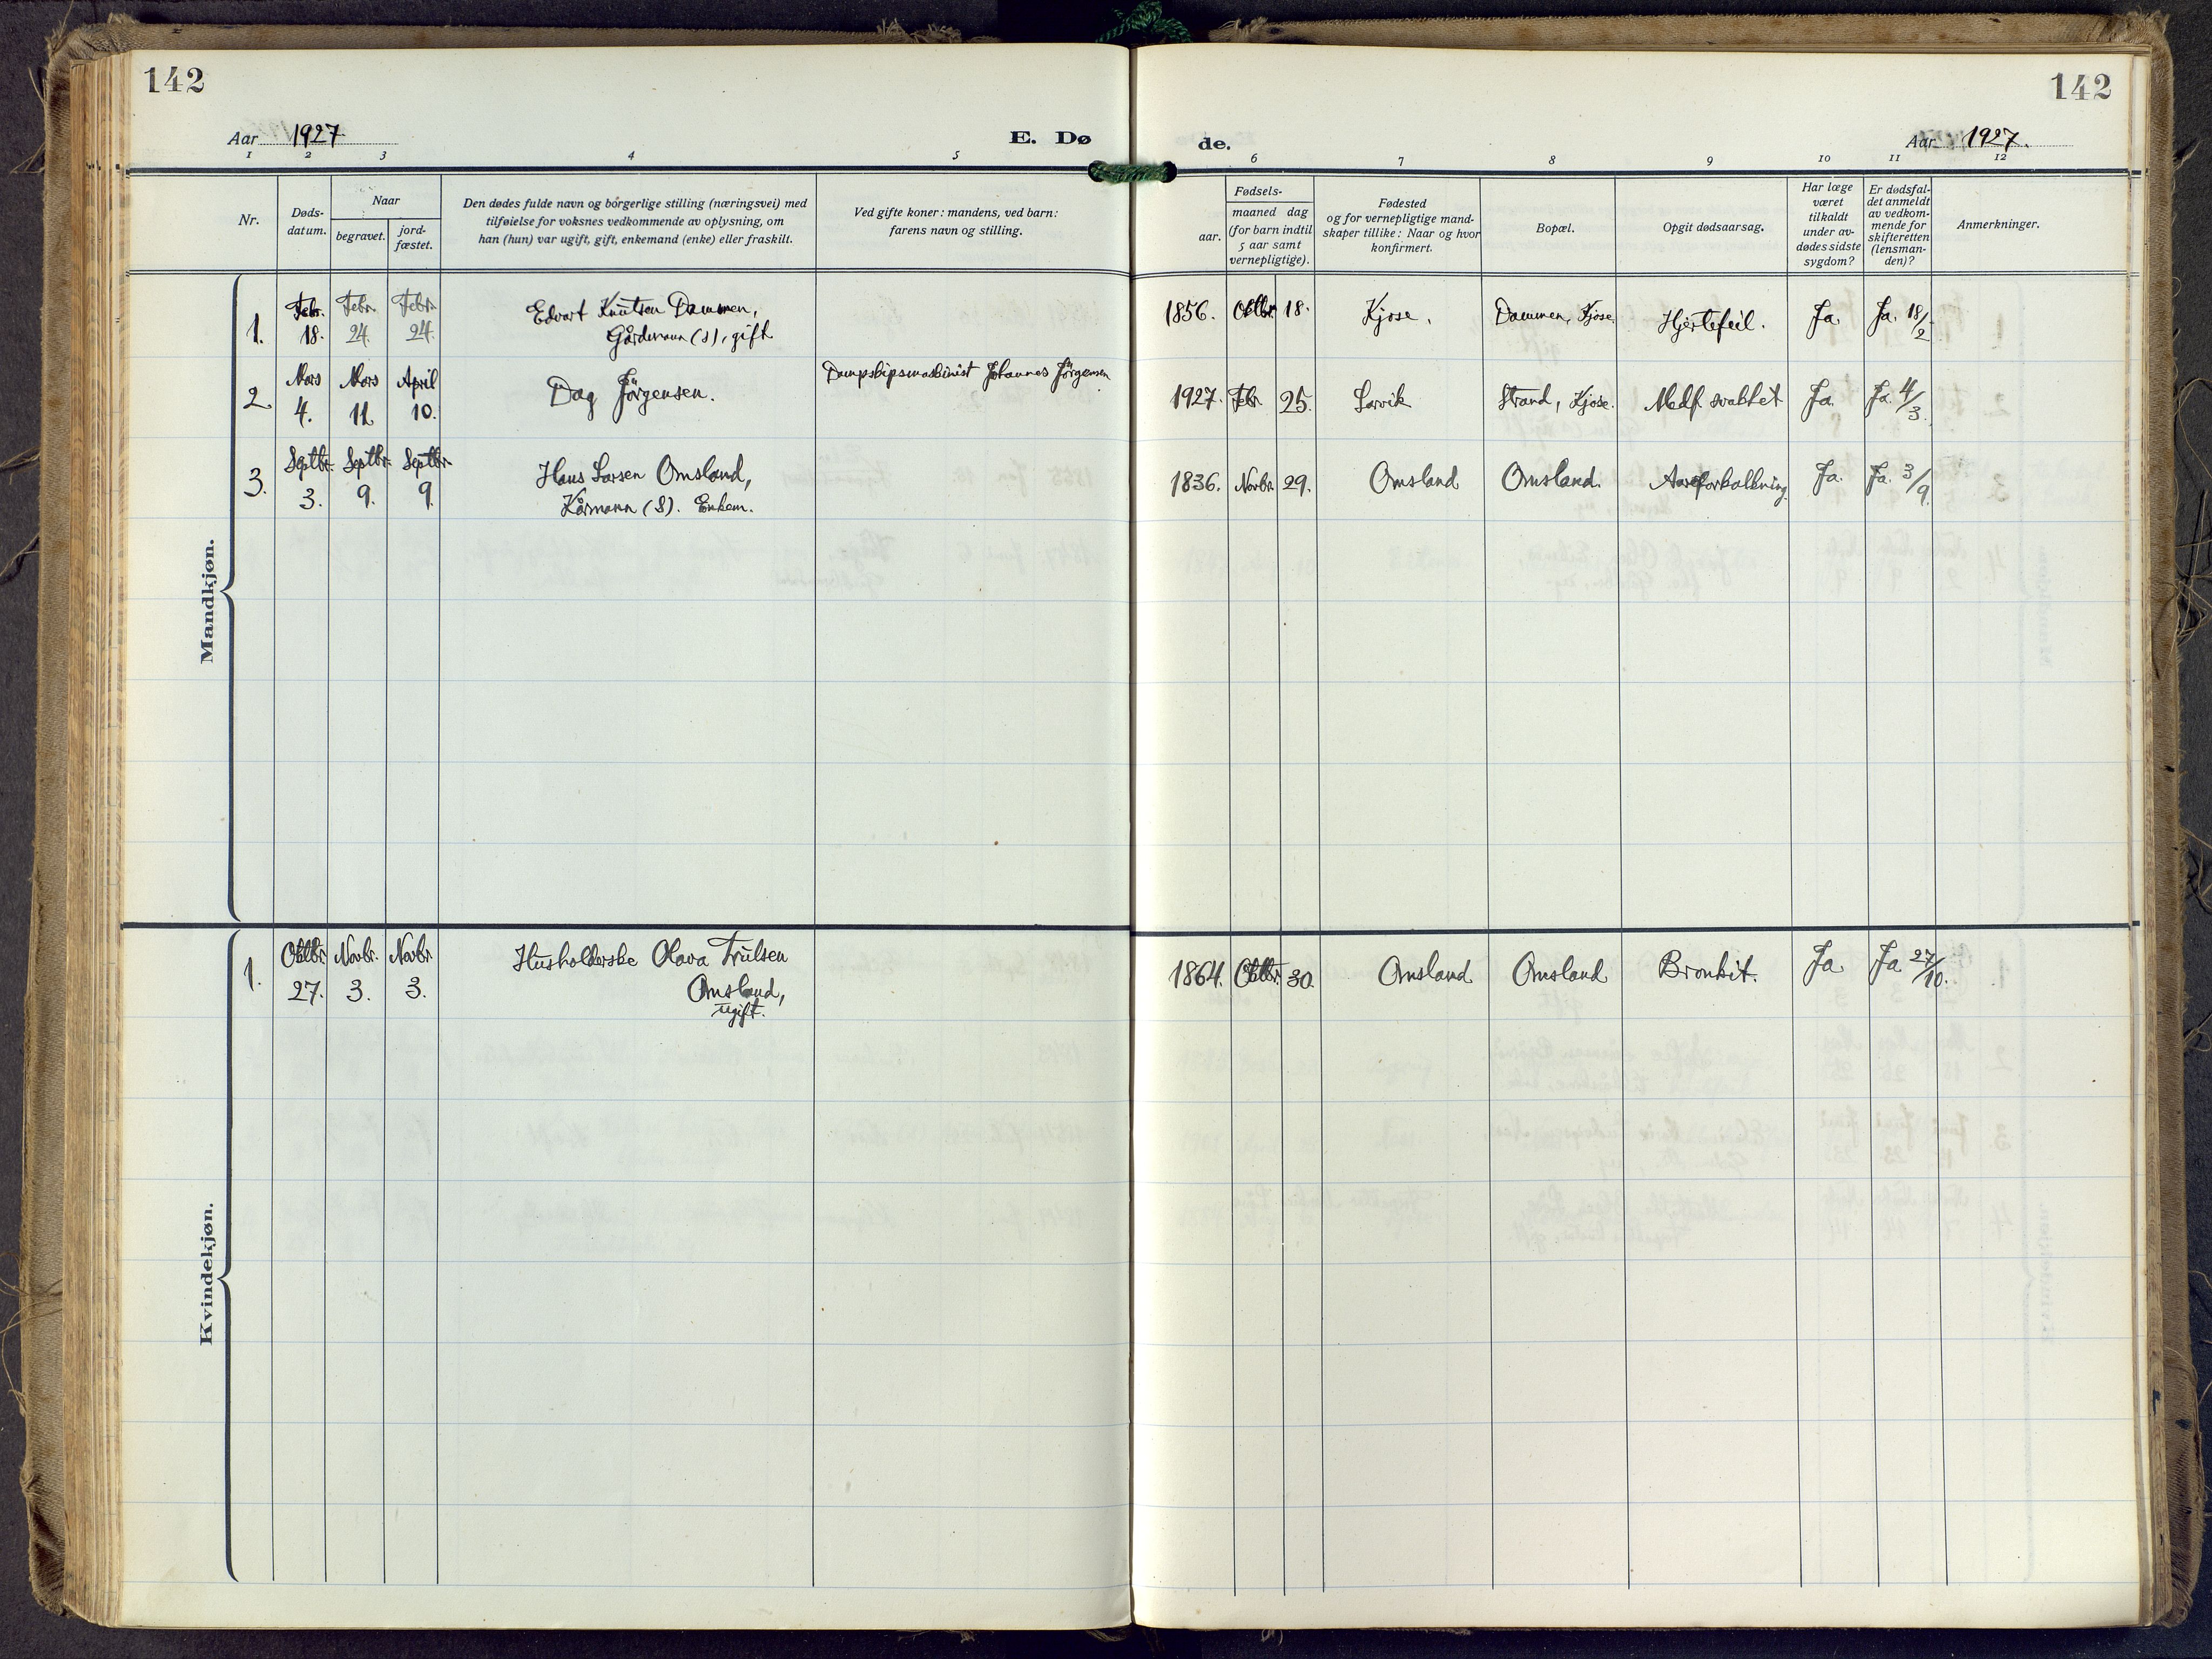 142
142
Aar 1927
E. Dø
de.
Aar 1927.
1 2 3 4 5 6 7 8 9 10 11 12
Nr.
Døds-
datum.
Naar
begravet.
jord-
fæstet.
Den dødes fulde navn og borgerlige stilling (næringsvei) med
tilføielse for voksnes vedkommende av oplysning, om
han (hun) var ugift, gift, enkemand (enke) eller fraskilt.
Ved gifte koner: mandens, ved barn:
farens navn og stilling.
Fødsels-
aar.
maaned dag
(for barn indtil
5 aar samt
vernepligtige).
Fødested
og for vernepligtige mand-
skaper tillike: Naar og hvor
konfirmert.
Bopæl.
Opgit dødsaarsag.
Har læge
været
tilkaldt
under av-
dødes sidste
sygdom?
Er dødsfal-
det anmeldt
av vedkom-
mende for
skifteretten
(lensman-
den)?
Anmerkninger.
Mandkjøn.
1.
Febr.
18.
Febr.
24.
Febr.
24.
Edvart Knutsen Dammen,
Gårdmann (S), gift
1856. Oktbr. 18.
Kjose.
Dammen, Kjose.
Hjertefeil.
Ja
Ja. 18/2
2
Mars
4.
Mars
11
April
10.
Dag Jörgensen.
Dampskipsmaskinist Johannes Jörgensen
1927. Febr. 25.
Larvik
Strand, Kjose.
Medf. svakhet
Ja.
Ja. 4/3.
3.
Septbr.
3.
Septbr.
9.
Septbr.
9.
Hans Larsen Omsland,
Kårmann (S). Enkem.
1836. Novbr. 29.
Omsland
Omsland.
Aareforkalkning.
Ja.
Ja. 3/9.
Kvindekjøn.
1.
Oktbr.
27.
Novbr.
3.
Novbr.
3.
Husholderske Olava Trulsen
Omsland,
ugift.
1864. Oktbr. 30.
Omsland
Omsland
Bronkit.
Ja
Ja 27/10.